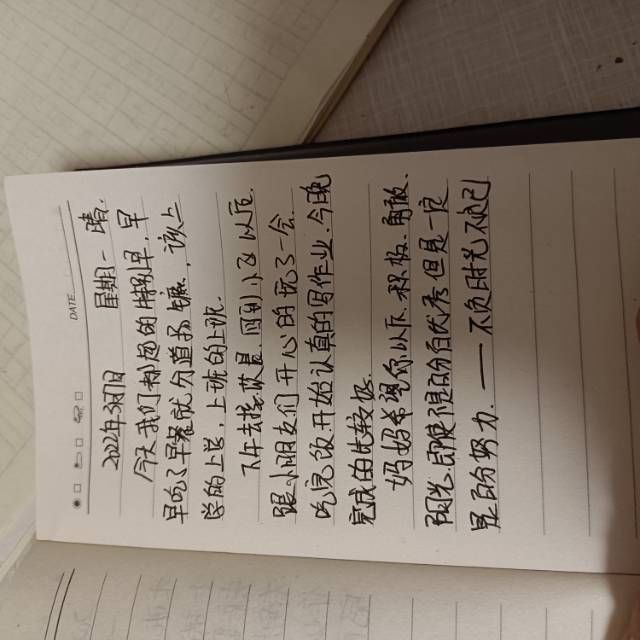 DATE
2024年3月1日 星期一 晴.
今天我们都起的特别早,早
早吃了早餐就分道扬镳,该上
学的上学,上班的上班.
下午去接放晨,回到小区以后.
跟小朋友们开心的玩了一会.
吃完饭开始认真的写作业.今晚
完成的比较极.
妈妈希望你以后.积极.勇敢.
阳光.即使不是百分百优秀.但是一定
是百分努力.——不负时光不负己